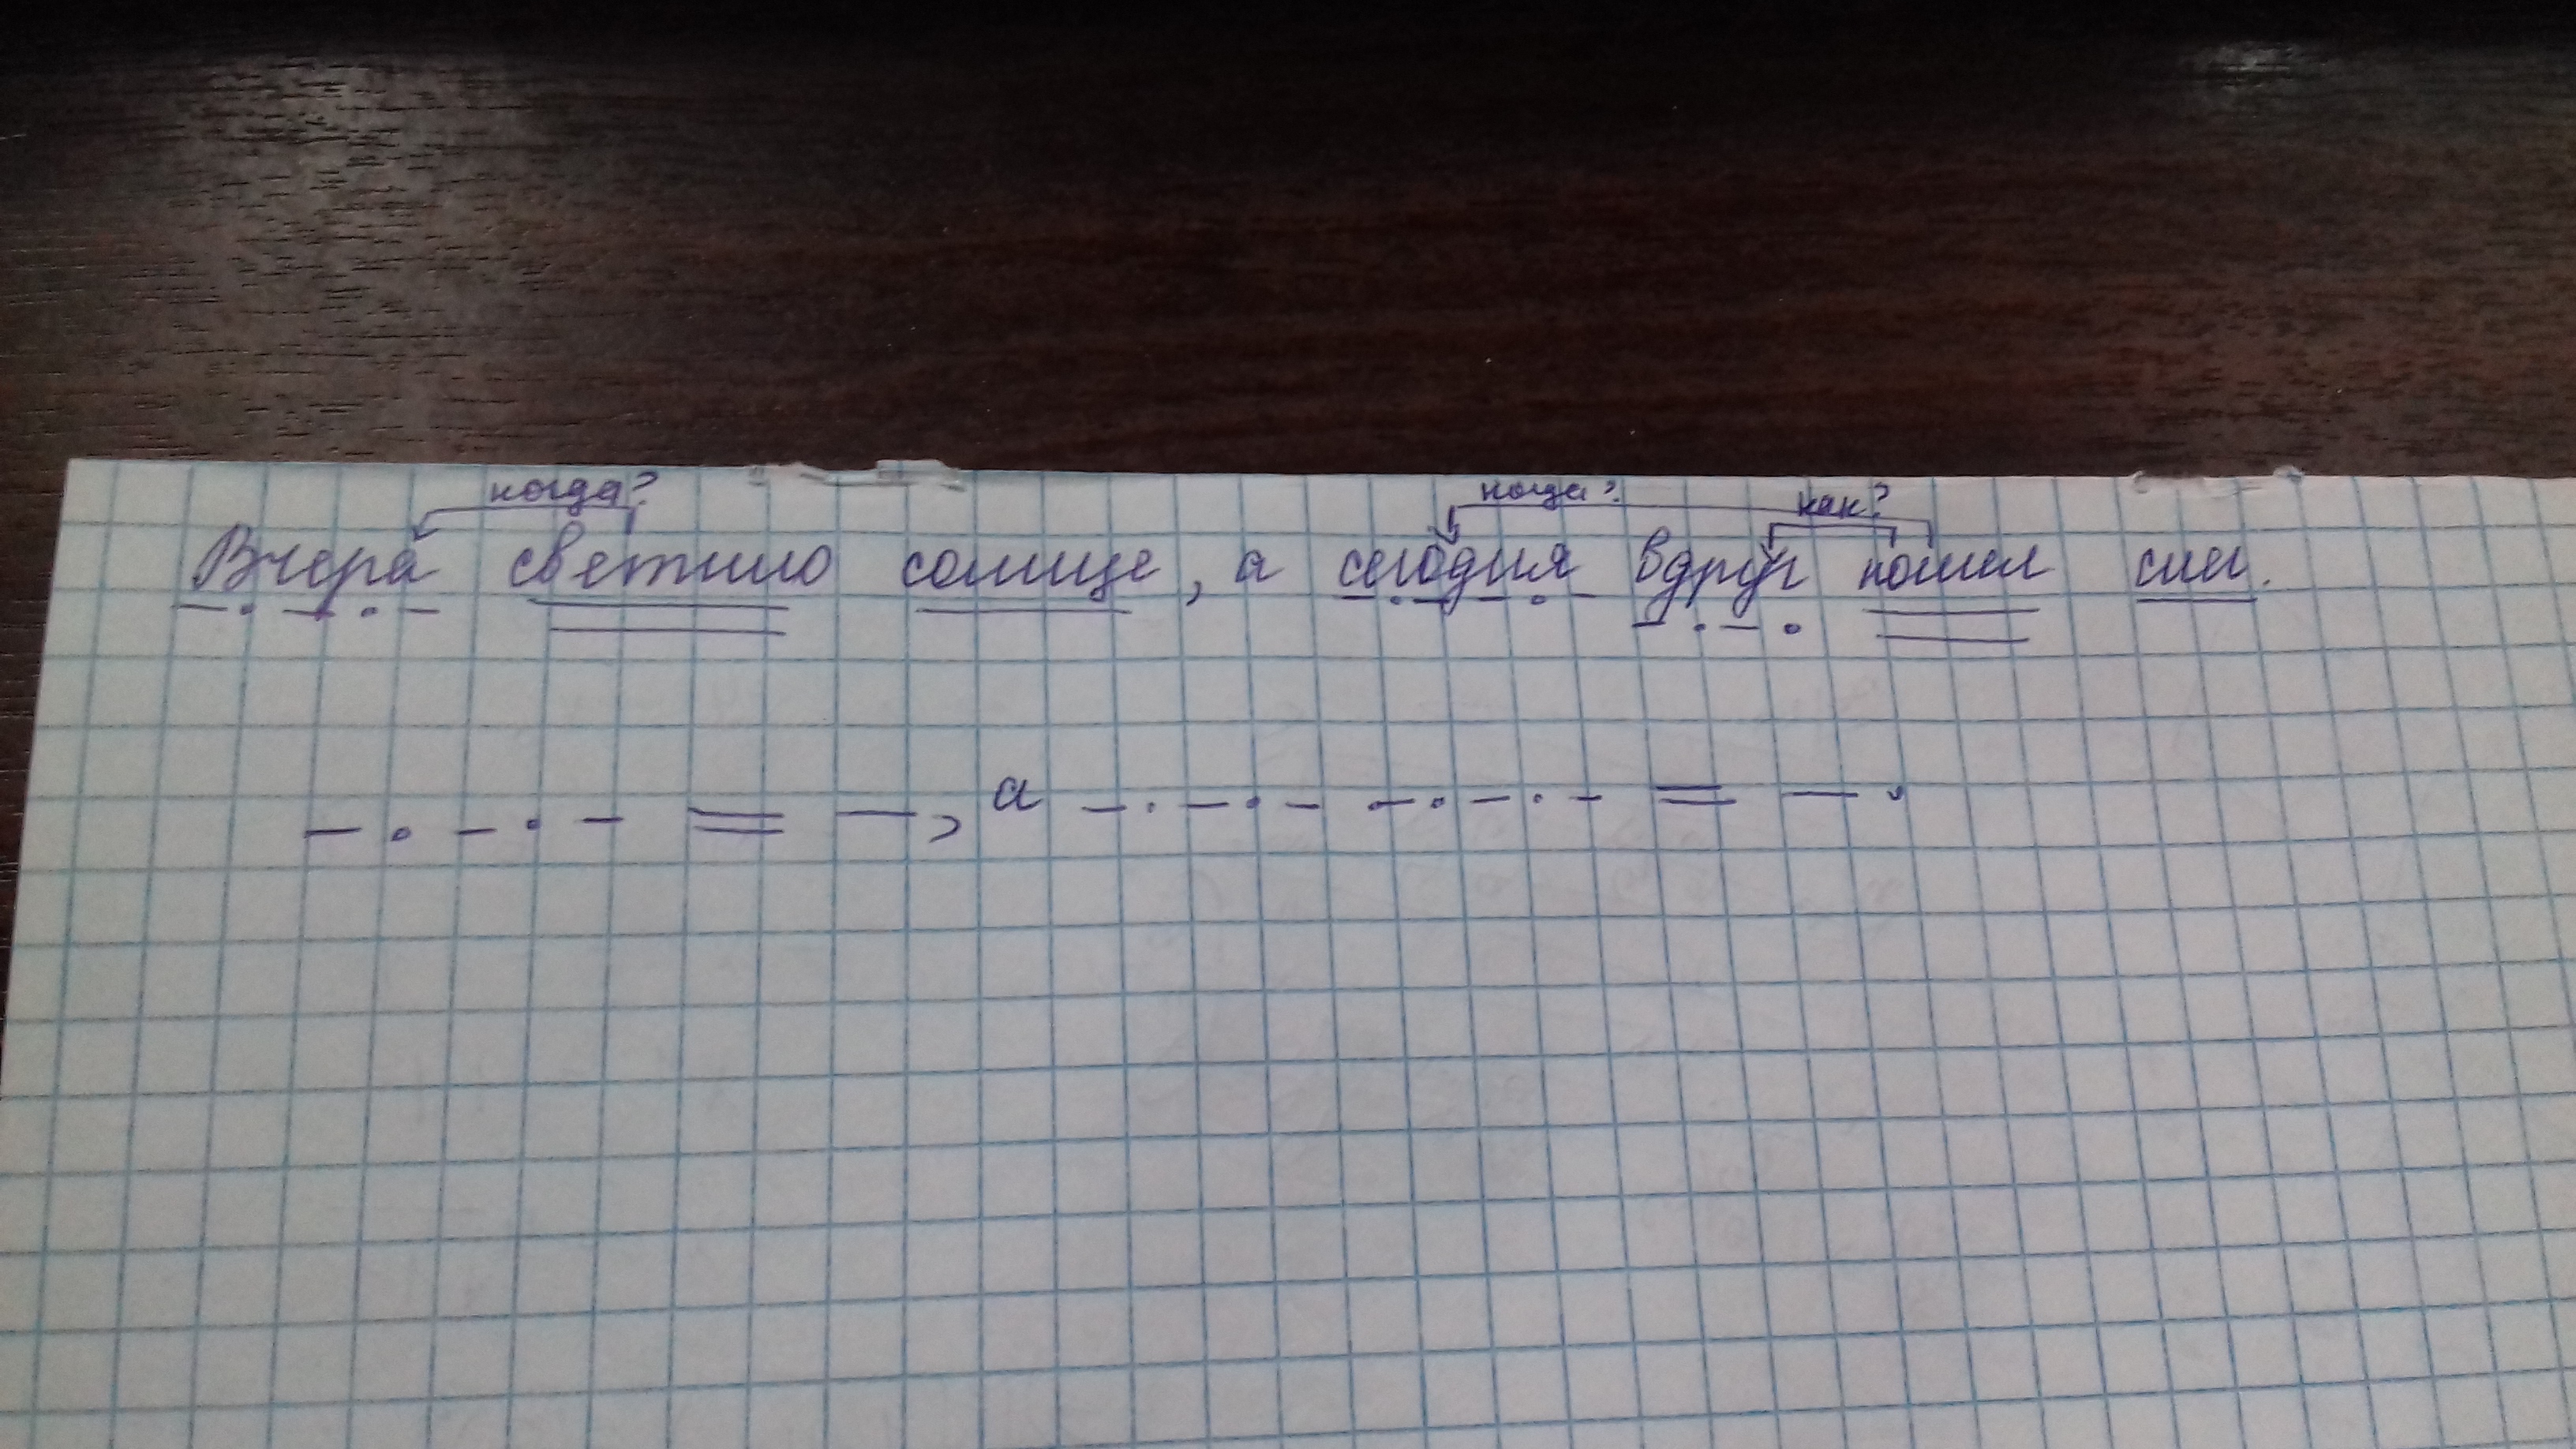 когда? когда? как?
Вчера светило солнце, а сегодня вдруг пошел снег.
а